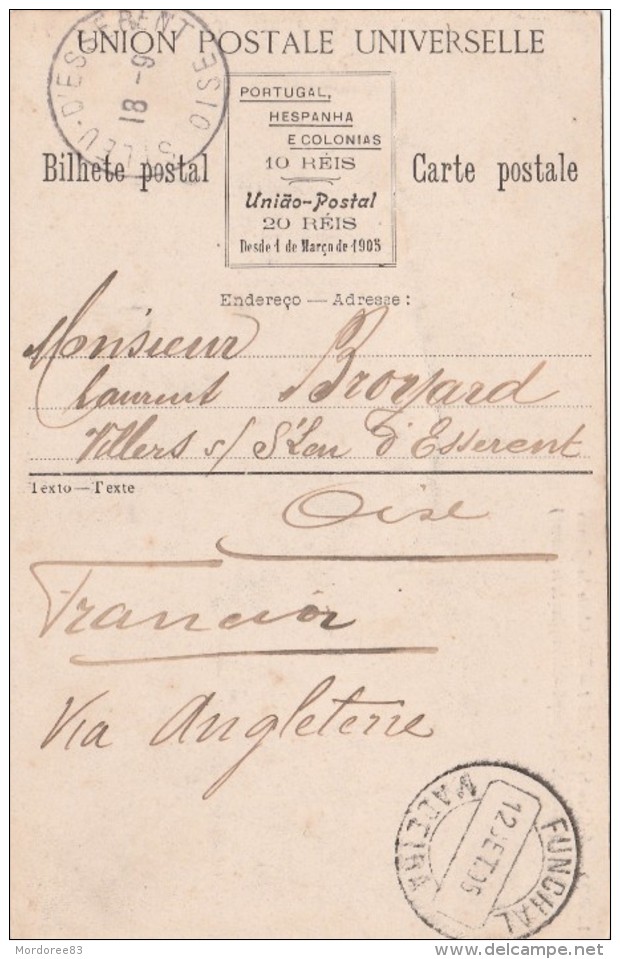 UNION POSTALE UNIVERSELLE
18 -9
PORTUGAL,
HESPANHA
E COLONIAS
10 RÉIS
União-Postal
20 RÉIS
Desde 1 de Março de 1905
Bilhete postal
Carte postale
Endereço — Adresse :
Monsieur
Laurent Broyard
Villers s/ St Leu d'Esserent
Texto — Texte
Oise
Francia
Via Angleterre
FUNCHAL
12 SET. 05
MADEIRA
Mordoree83
delcampe.net